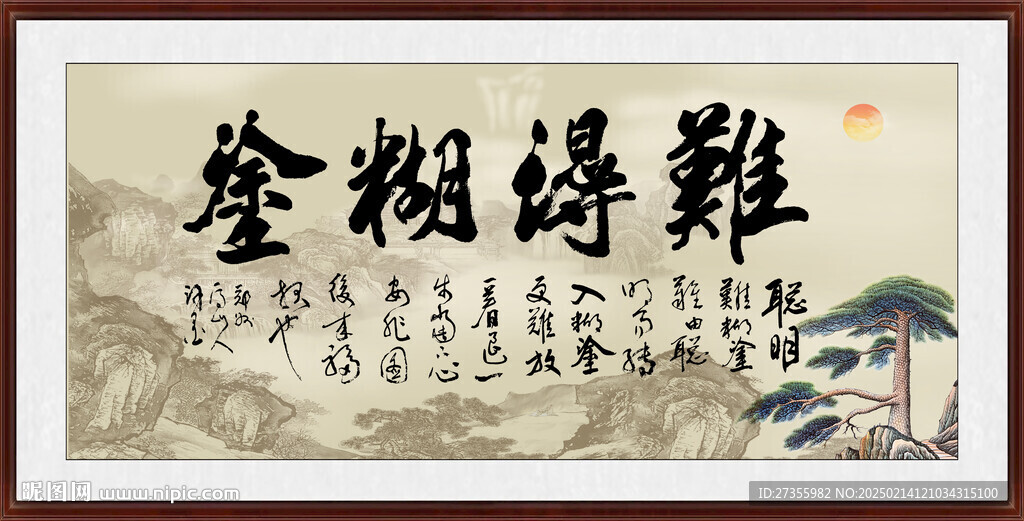 難得糊塗
聰明
難糊塗
難由聰
明而轉
入糊塗
更難放
一着退一
步當下心
安非圖
後來福
報也
山人
昵图网 www.nipic.com
ID:27355982 NO:20250214121034315100